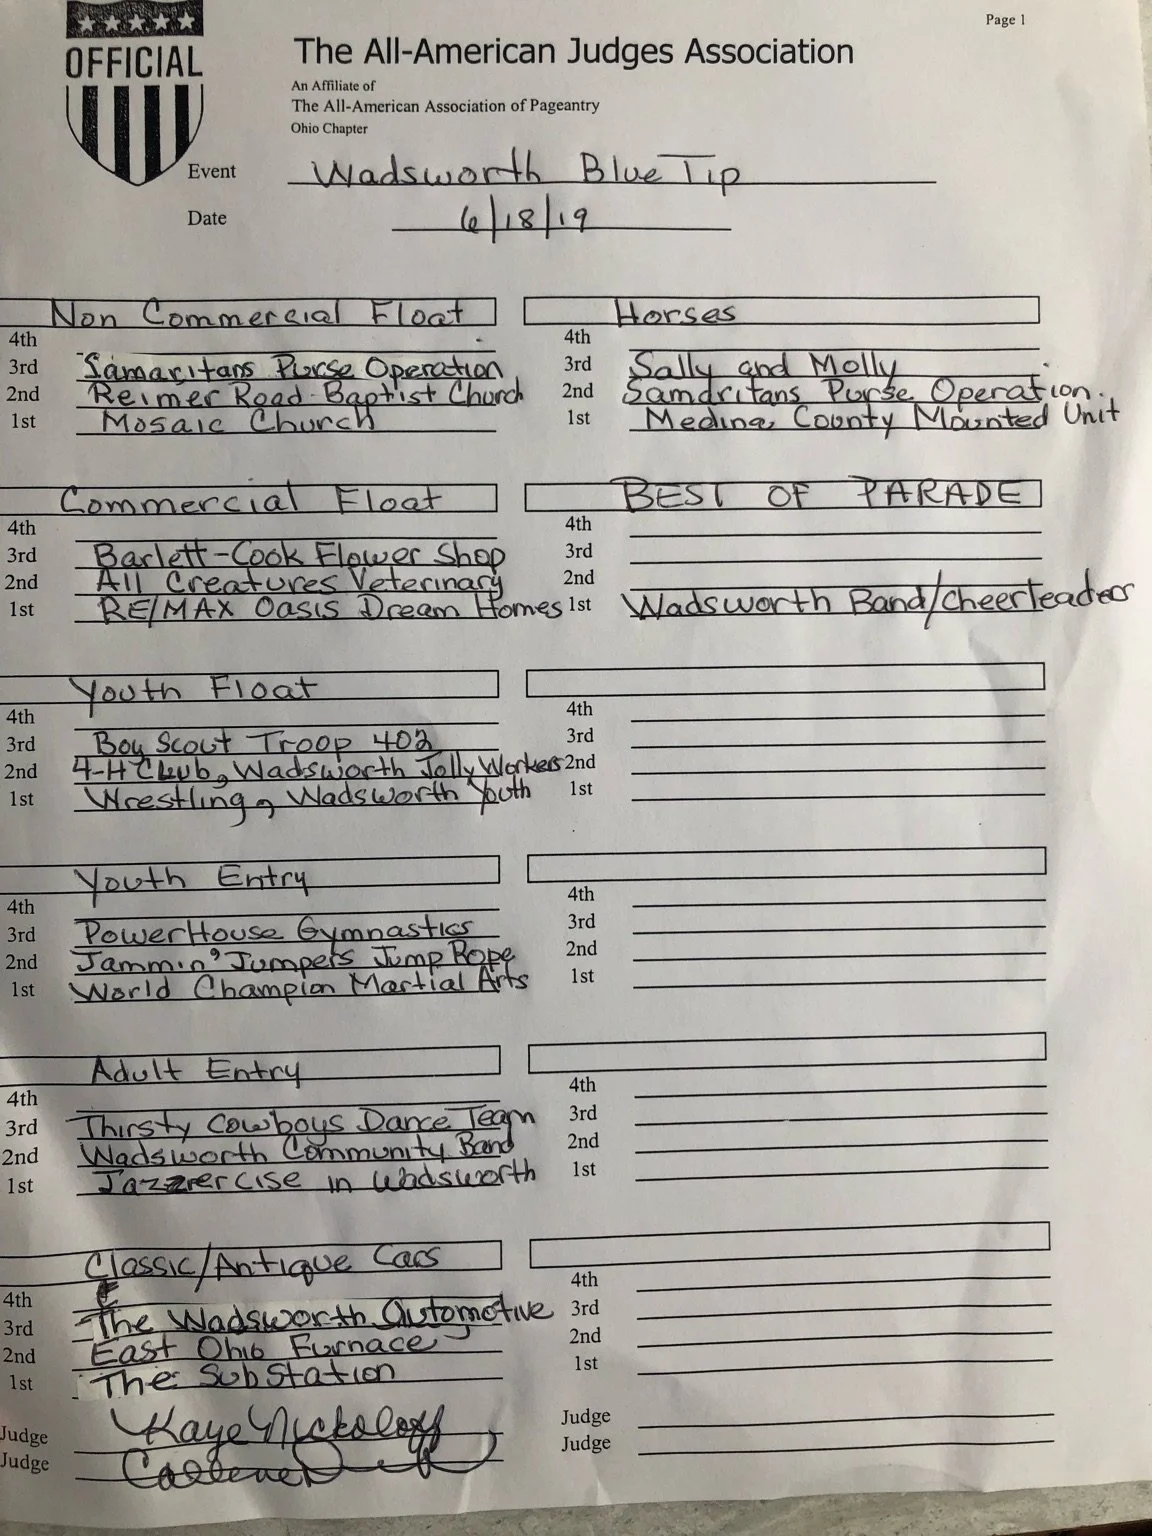 Page 1
OFFICIAL
The All-American Judges Association
An Affiliate of
The All-American Association of Pageantry
Ohio Chapter
Event Wadsworth Blue Tip
Date 6/18/19
Non Commercial Float
4th
3rd Samaritans Purse Operation
2nd Reimer Road Baptist Church
1st Mosaic Church
Horses
4th
3rd Sally and Molly
2nd Samaritans Purse Operation.
1st Medina County Mounted Unit
Commercial Float
4th
3rd Barlett-Cook Flower Shop
2nd All Creatures Veterinary
1st RE/MAX Oasis Dream Homes
BEST OF PARADE
4th
3rd
2nd
1st Wadsworth Band/Cheerleaders
Youth Float
4th
3rd Boy Scout Troop 402
2nd 4-H Club, Wadsworth Jolly Workers
1st Wrestling, Wadsworth Youth
4th
3rd
2nd
1st
Youth Entry
4th
3rd PowerHouse Gymnastics
2nd Jammin' Jumpers Jump Rope
1st World Champion Martial Arts
4th
3rd
2nd
1st
Adult Entry
4th
3rd Thirsty Cowboys Dance Team
2nd Wadsworth Community Band
1st Jazzercise in Wadsworth
4th
3rd
2nd
1st
Classic/Antique Cars
4th
3rd The Wadsworth Automotive
2nd East Ohio Furnace
1st The SubStation
4th
3rd
2nd
1st
Judge Kaye Nickoloff
Judge
Judge
Judge